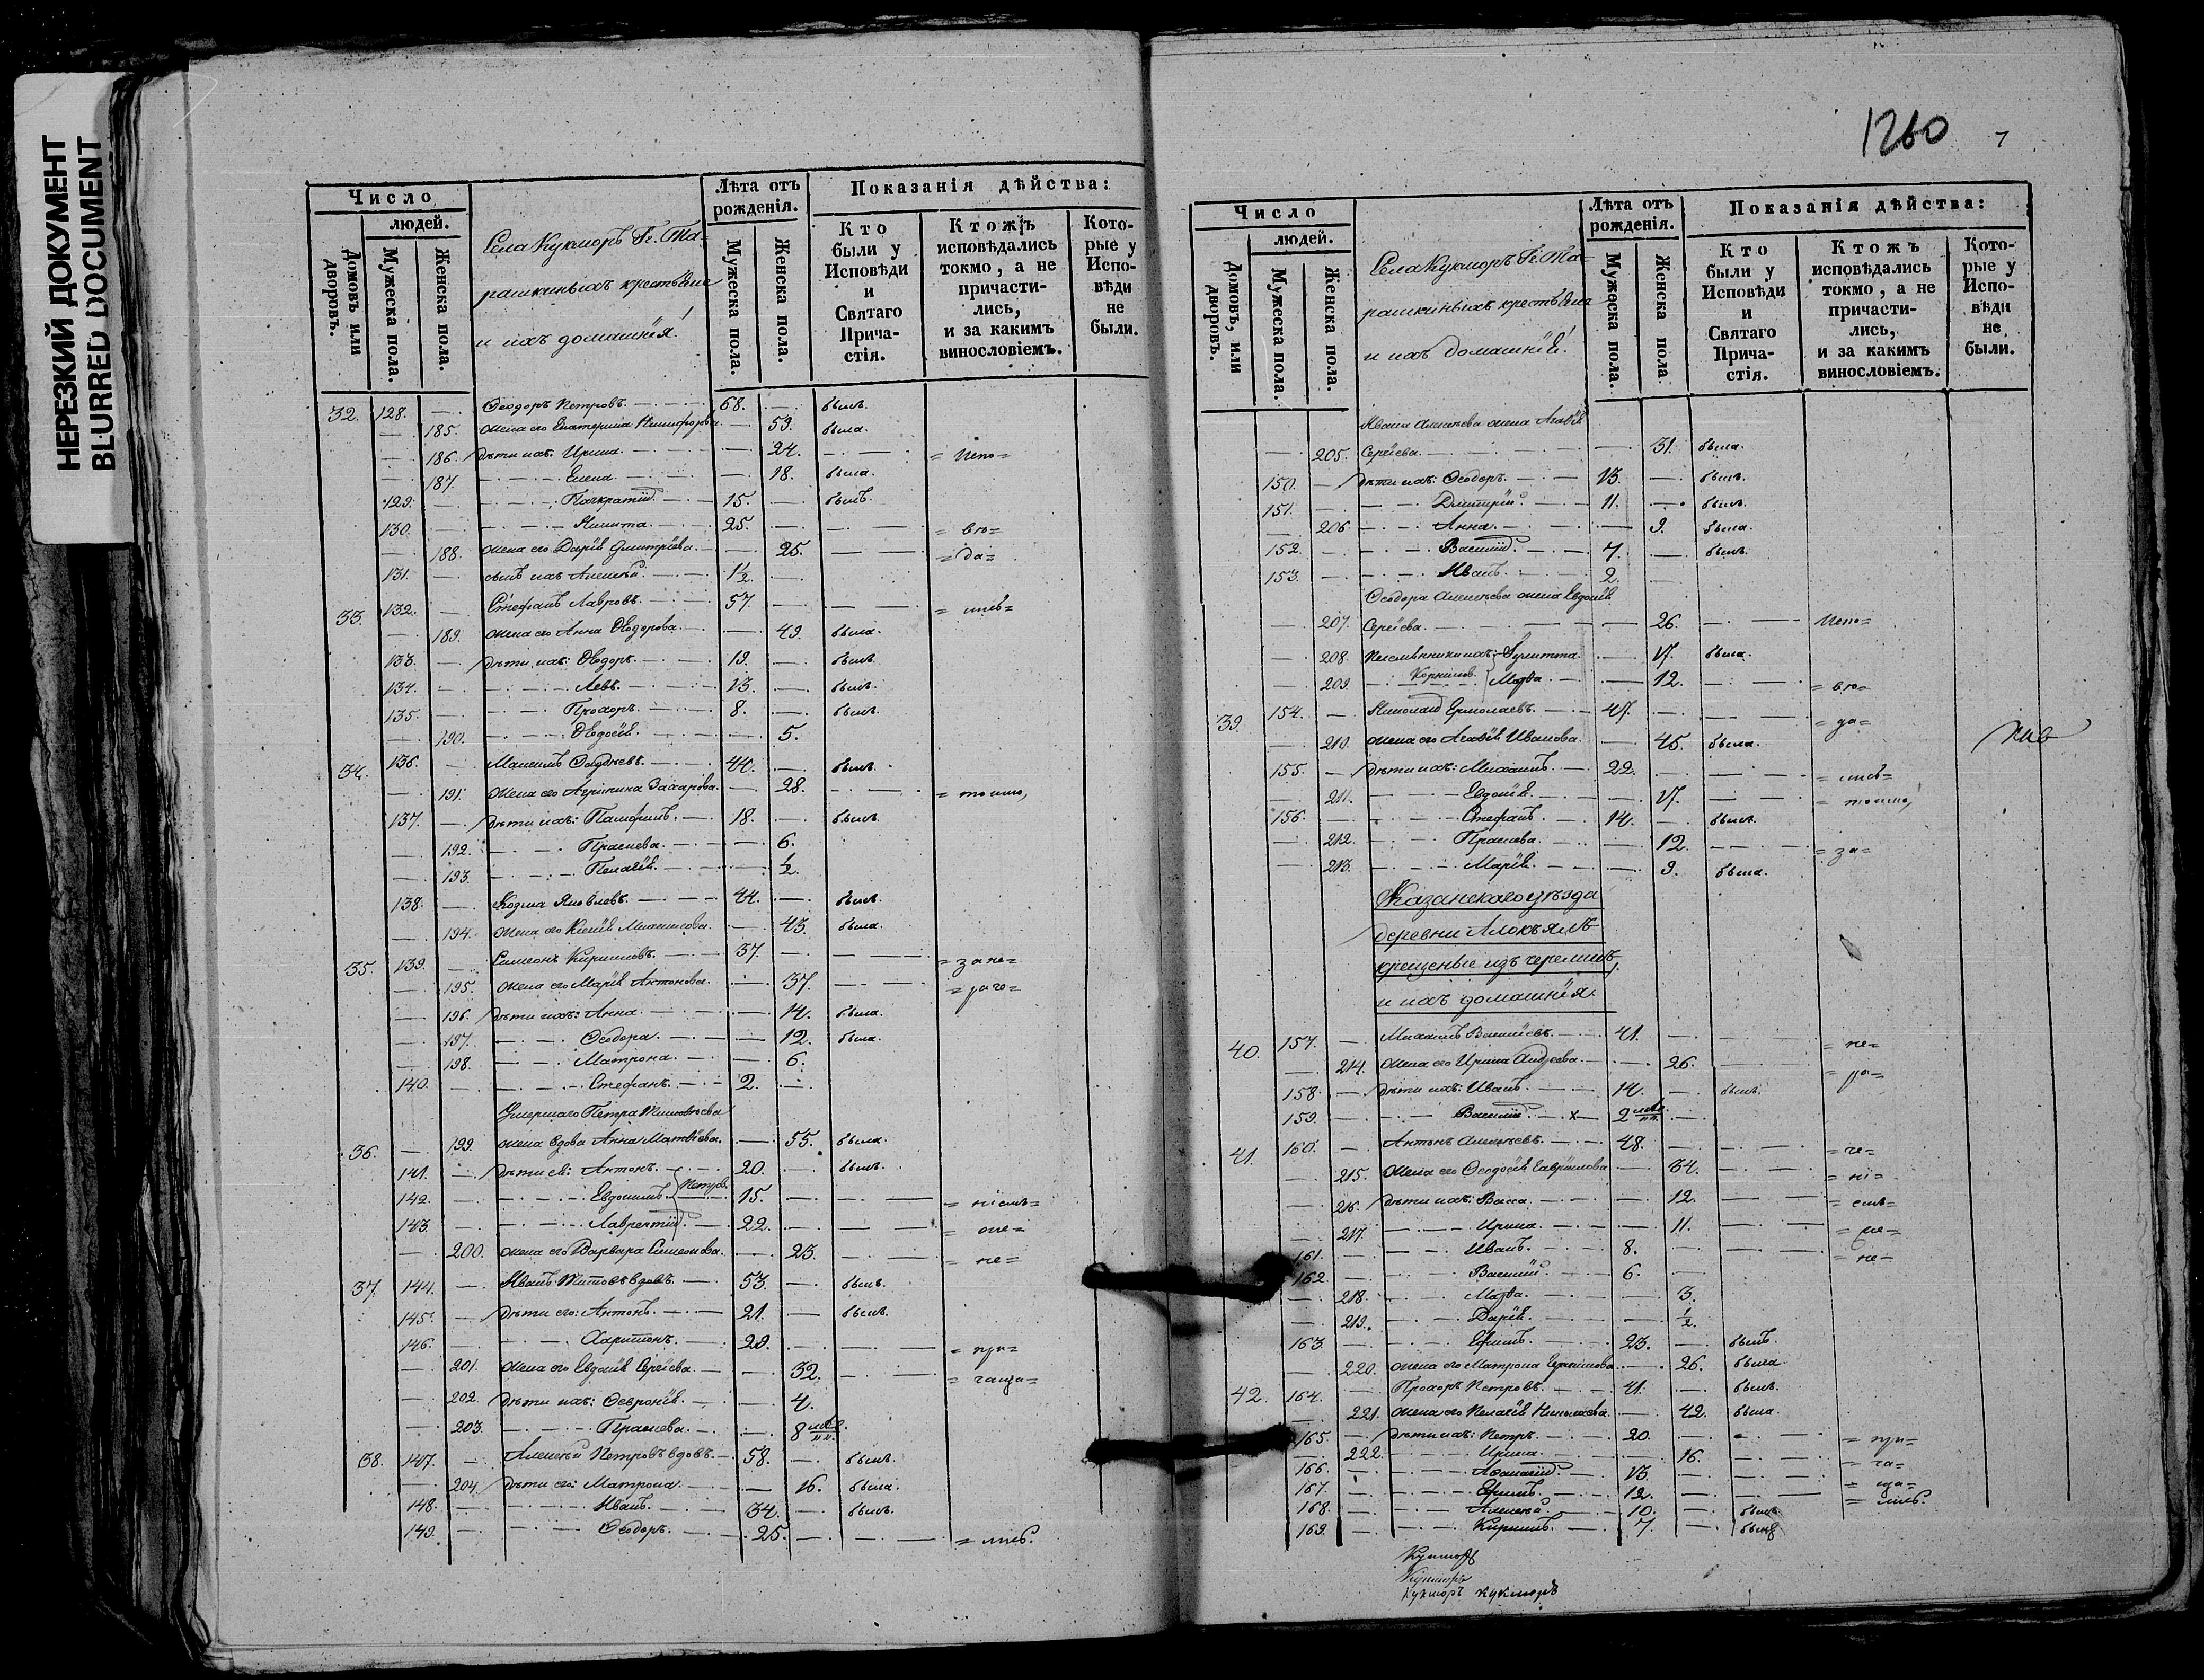 НЕРЕЗКИЙ ДОКУМЕНТ
BLURRED DOCUMENT
Число
людей.
Домовъ или дворовъ.
Мужеска пола.
Женска пола.
Села Кукморъ Гг. Та-
рашкиныхъ крестьяне
и ихъ домашнія:
Лѣта отъ рожденія.
Мужеска пола.
Женска пола.
Показанія дѣйства:
Кто были у Исповѣди и Святаго Причастія.
Ктожъ исповѣдались токмо, а не причастились, и за какимъ винословіемъ.
Которые у Исповѣди не были.
32. 128. — Ѳеодоръ Петровъ. 68. — былъ.
— 185. жена его Екатерина Никифорова — 53. была.
— 186. дѣти ихъ: Ирина — 24. — = Испо=
— 187. Елена — 18. была.
129. — Панкратій 15. — былъ.
130. — Никита 25. — = вѣ=
— 188. жена его Дарія Дмитріева — 25. — = да=
131. — сынъ ихъ Алексѣй 1½ —
33. 132. — Стефанъ Лавровъ. 57. — = лись=
— 189. жена его Анна Ѳеодорова. — 49. была.
133. — дѣти ихъ: Ѳеодоръ. 19. — былъ.
134. — Левъ. 13. — былъ.
135. — Прохоръ. 8. — былъ.
— 190. Ѳедосія — 5.
34. 136. — Максимъ 44. — былъ.
— 191. жена его Агрипина Захарова. — 28. — = токмо,
137. — дѣти ихъ: Памфилъ. 18. — былъ.
— 192. Прасковья. — 6.
— 193. Пелагія. — ½.
138. — Козма Яковлевъ. 44. — былъ.
— 194. жена его Ксенія Михайлова. — 43. была.
35. 139. — Симеонъ Кириловъ. 37. — = за не=
— 195. жена его Марія Антонова. — 37. — = раче=
— 196. дѣти ихъ: Анна. — 14. была.
— 197. Ѳеодора. — 12. была.
— 198. Матрона. — 6.
140. — Стефанъ. 2. —
Умершаго Петра Тимоѳеева
36. — 199. жена вдова Анна Матвіева. — 55. была.
141. — дѣти ея: Антонъ. 20. — былъ.
142. — Евдокимъ Петров. 15. — = ніемъ=
143. — Лаврентій. 22. — = оне=
— 200. жена его Варвара Симеонова. — 23. — = не=
37. 144. — Иванъ Титовъ вдовъ. 53. — былъ.
145. — дѣти его: Антонъ. 21. — былъ.
146. — Харитонъ. 29. — = при=
— 201. жена его Евдокія Сергіева. — 32. — = чаща=
— 202. дѣти ихъ: Ѳевронія. — 4.
— 203. Прасковья. — 8 мѣс.
38. 147. — Алексѣй Петровъ вдовъ. 58. — былъ.
— 204. дѣти его: Матрона. — 16. была.
148. — Иванъ. 34. — былъ.
149. — Ѳеодоръ. 25. — = лись.
1260
7
Число
людей.
Домовъ, или дворовъ.
Мужеска пола.
Женска пола.
Села Кукморъ Гг. Та-
рашкиныхъ крестьяне
и ихъ домашнія:
Лѣта отъ рожденія.
Мужеска пола.
Женска пола.
Показанія дѣйства:
Кто были у Исповѣди и Святаго Причастія.
Ктожъ исповѣдались токмо, а не причастились, и за какимъ винословіемъ.
Которые у Исповѣди не были.
Ивана Алексѣева жена Агаѳія
— 205. Сергіева. — 31. была.
150. — дѣти ихъ: Ѳеодоръ. 13. — былъ.
151. — Дмитрій. 11. — былъ.
— 206. Анна. — 9. была.
152. — Василій. 7. — былъ.
153. — Иванъ. 2. —
Ѳеодора Алексѣева жена Евдокія
— 207. Сергіева. — 26. — Испо=
— 208. Племянники ихъ: Улитта — 17. была.
— 209. Корнилов. Марѳа — 12. — = вѣ=
39. 154. — Николай Ермолаевъ. 47. — = да=
— 210. жена его Агаѳія Иванова. — 45. была.
155. — дѣти ихъ: Михаилъ. 22. — = лись=
— 211. Евдокія. — 17. — = токмо,
156. — Стефанъ. 14. — былъ.
— 212. Прасковья. — 12. — = за=
— 213. Марія. — 9. была.
Казанскаго уѣзда
деревни
крещеные изъ черемисъ
и ихъ домашнія.
40. 157. — Михаилъ Васильевъ. 41. — = не=
— 214. жена его Ирина Андреева. — 26. — = ра=
158. — дѣти ихъ: Иванъ. 14. — былъ.
159. — Василій. х 2 мѣс. —
41. 160. — Антонъ Алексѣевъ. 48. — = че=
— 215. жена его Ѳеодосія Гаврилова — 34. — = ні=
— 216. дѣти ихъ: Васса. — 12. — = емъ=
— 217. Ирина. — 11. —
161. — Иванъ. 8. — = не=
162. — Василій. 6. —
— 218. Марѳа. — 3.
— 219. Дарія. — ½.
163. — Ефимъ. 23. — былъ.
— 220. жена его Матрона — 26. была.
42. 164. — Прохоръ Петровъ. 41. — былъ.
— 221. жена его Пелагія Николаева. — 42. была.
165. — дѣти ихъ: Петръ. 20. — = при=
— 222. Ирина. — 16. — = ча=
166. — Аѳанасій. 13. — = ща=
167. — Ефимъ. 12. — = лись.
168. — Алексѣй. 10. — былъ.
169. — Кирилъ. 7. — былъ.
Кукморъ
Кукморъ
Кукморъ кукморъ